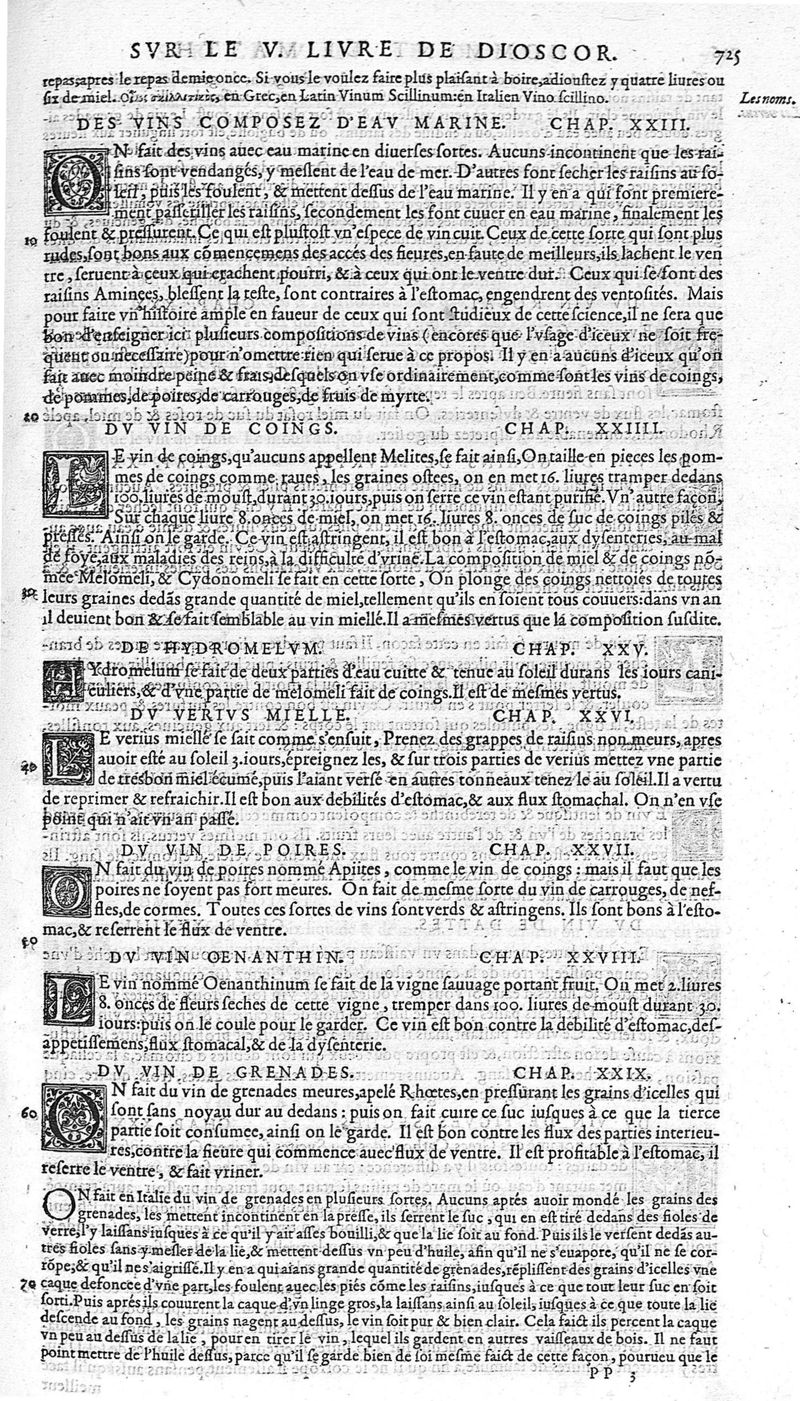 SVR LE V. LIVRE DE DIOSCOR. 725
repas, apres le repas demigonce. Si vous le voulez faire plus plaisant à boire, adioustez y quatre liures ou
six de miel. en Grec, en Latin Vinum Scillinum: en Italien Vino scillino. Les noms.
DES VINS COMPOSEZ D'EAV MARINE. CHAP. XXIII.
ON fait des vins auec eau marine en diuerses sortes. Aucuns incontinent que les rai-
sins sont vendangés, y meslent de l'eau de mer. D'autres font secher les raisins au so-
leil, puis les foulent, & mettent dessus de l'eau marine. Il y en a qui font premiere-
ment passeriller les raisins, secondement les font cuuer en eau marine, finalement les
10 foulent & pressurent. Ce qui est plustost vn'espece de vin cuit. Ceux de cette sorte qui sont plus
rudes, sont bons aux cōmencemens des accés des fieures, en faute de meilleurs, ils lachent le ven
tre, seruent à ceux qui crachent pourri, & à ceux qui ont le ventre dur. Ceux qui se font des
raisins Aminées, blessent la teste, sont contraires à l'estomac, engendrent des ventosités. Mais
pour faire vn'histoire ample en faueur de ceux qui sont studieux de cette science, il ne sera que
bon d'enseigner ici plusieurs compositions de vins (encores que l'vsage d'iceux ne soit fre-
quent ou necessaire) pour n'omettre rien qui serue à ce propos. Il y en a aucuns d'iceux qu'on
fait auec moindre peine & frais, desquels on vse ordinairement, comme sont les vins de coings,
de pommes, de poires, de carrouges, de fruis de myrte.
20
DV VIN DE COINGS. CHAP. XXIIII.
LE vin de coings, qu'aucuns appellent Melites, se fait ainsi, On taille en pieces les pom-
mes de coings comme raues, les graines ostees, on en met 16. liures tramper dedans
100. liures de moust, durant 30. iours, puis on serre ce vin estant purifié. Vn' autre façon,
Sur chaque liure 8. onces de miel, on met 16. liures 8. onces de suc de coings pilés &
pressés. Ainsi on le garde. Ce vin est astringent, il est bon à l'estomac, aux dysenteries, au mal
de foye, aux maladies des reins, à la difficulté d'vrine. La composition de miel & de coings nō-
mée Melomeli, & Cydonomeli se fait en cette sorte, On plonge des coings nettoies de toutes
30 leurs graines dedās grande quantité de miel, tellement qu'ils en soient tous couuers: dans vn an
il deuient bon & se fait semblable au vin miellé. Il a mesmes vertus que la composition susdite.
DE HYDROMELVM. CHAP. XXV.
HYdromelum se fait de deux parties d'eau cuitte & tenue au soleil durans les iours cani-
culiers, & d'vne partie de melomeli fait de coings. Il est de mesmes vertus.
DV VERIVS MIELLE. CHAP. XXVI.
LE verius miellé se fait comme s'ensuit, Prenez des grappes de raisins non meurs, apres
40 auoir esté au soleil 3. iours, épreignez les, & sur trois parties de verius mettez vne partie
de tresbon miel écumé, puis l'aiant versé en autres tonneaux tenez le au soleil. Il a vertu
de reprimer & refraichir. Il est bon aux debilités d'estomac, & aux flux stomachal. On n'en vse
point qui n'ait vn an passé.
DV VIN DE POIRES. CHAP. XXVII.
ON fait du vin de poires nommé Apiites, comme le vin de coings: mais il faut que les
poires ne soyent pas fort meures. On fait de mesme sorte du vin de carrouges, de nef-
fles, de cormes. Toutes ces sortes de vins sont verds & astringens. Ils sont bons à l'esto-
mac, & reserrent le flux de ventre.
50
DV VIN OENANTHIN. CHAP. XXVIII.
LE vin nommé Oenanthinum se fait de la vigne sauuage portant fruit. On met 2. liures
8. onces de fleurs seches de cette vigne, tremper dans 100. liures de moust durant 30.
iours: puis on le coule pour le garder. Ce vin est bon contre la debilité d'estomac, des-
appetissemens, flux stomacal, & de la dysenterie.
DV VIN DE GRENADES. CHAP. XXIX.
ON fait du vin de grenades meures, apelé Rhœtes, en pressurant les grains d'icelles qui
60 sont sans noyau dur au dedans: puis on fait cuire ce suc iusques à ce que la tierce
partie soit consumee, ainsi on le garde. Il est bon contre les flux des parties interieu-
res, contre la fieure qui commence auec flux de ventre. Il est profitable à l'estomac, il
reserre le ventre, & fait vriner.
ON fait en Italie du vin de grenades en plusieurs sortes. Aucuns aprés auoir mondé les grains des
grenades, les mettent incontinent en la presse, ils serrent le suc, qui en est tiré dedans des fioles de
verre, l'y laissans iusques à ce qu'il y ait assés bouilli, & que la lie soit au fond. Puis ils le versent dedās au-
tres fioles sans y mesler de la lie, & mettent dessus vn peu d'huile, afin qu'il ne s'euapore, qu'il ne se cor-
rōpe, & qu'il ne s'aigrisse. Il y en a qui aians grande quantité de grenades, réplissent des grains d'icelles vne
70 caque defoncée d'vne part, les foulent auec les piés cōme les raisins, iusques à ce que tout leur suc en soit
sorti. Puis aprés ils couurent la caque d'vn linge gros, la laissans ainsi au soleil, iusques à ce que toute la lie
descende au fond, les grains nagent au dessus, le vin soit pur & bien clair. Cela faict ils percent la caque
vn peu au dessus de la lie, pour en tirer le vin, lequel ils gardent en autres vaisseaux de bois. Il ne faut
point mettre de l'huile dessus, parce qu'il se garde bien de soi mesme faict de cette façon, pourueu que le
PP 3